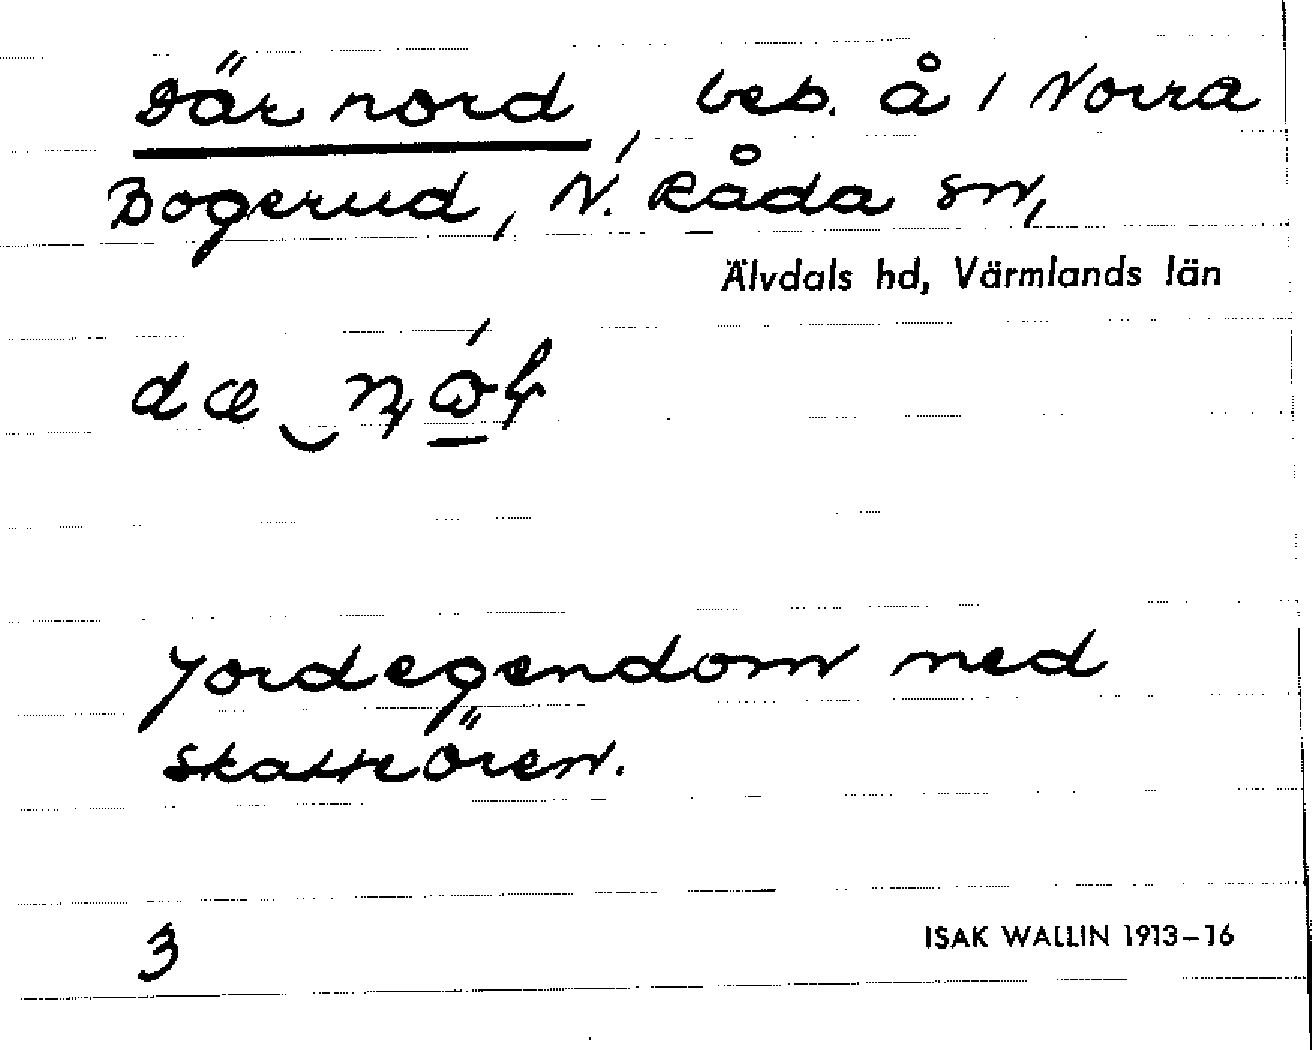 Där nord, beb. å 1 Norra
Bogerud, N. Råda sn,
Älvdals hd, Värmlands län
Jordegendom med
skatteören.
3
ISAK WALLIN 1913–16